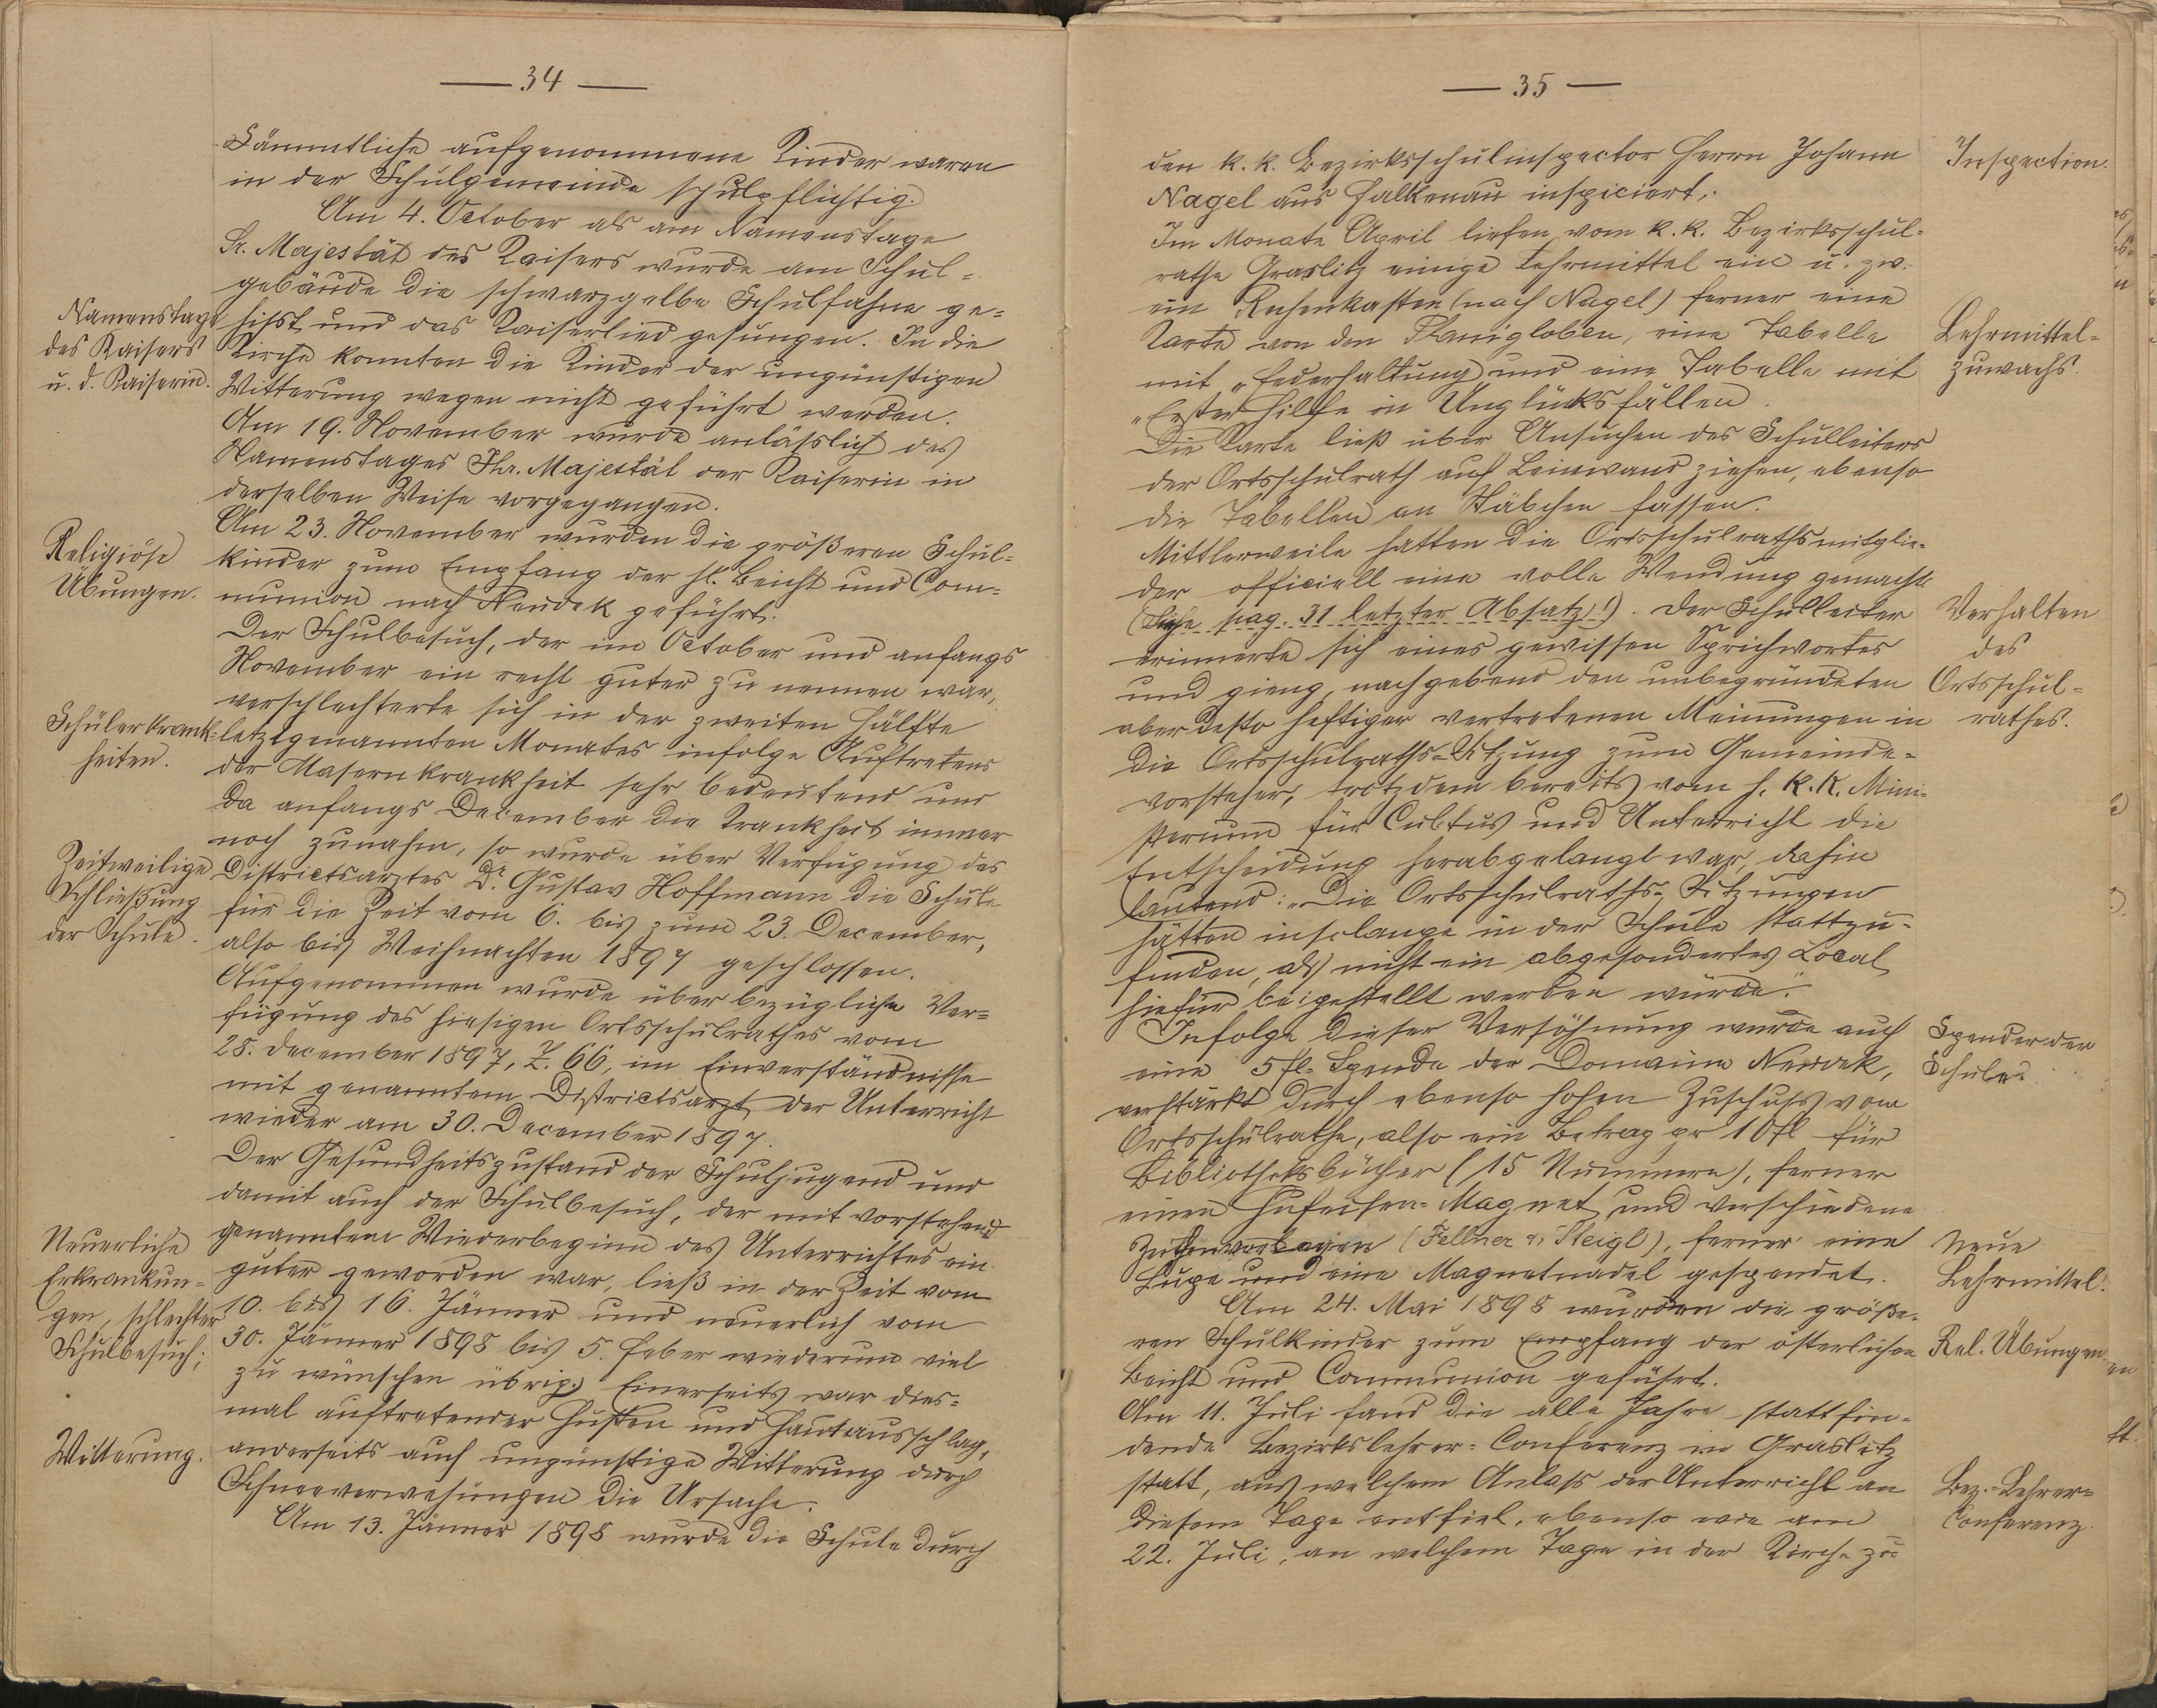 — 34 —
Sämmtliche aufgenommene Kinder waren
in der Schulgemeinde schulpflichtig.
Am 4. October als am Namenstage
Sr. Majestät des Kaisers wurde am Schul-
gebäude die schwarzgelbe Schulfahne ge-
Namenstage
des Kaisers
u. d. Kaiserin.
hisst und das Kaiserlied gesungen. In die
Kirche konnten die Kinder der ungünstigen
Witterung wegen nicht geführt werden.
Am 19. November wurde anlässlich des
Namenstages Ihr. Majestät der Kaiserin in
derselben Weise vorgegangen.
Religiöse
Übungen.
Am 23. November wurden die größeren Schul-
kinder zum Empfang der hl. Beicht und Com-
munion nach Neudek geführt.
Der Schulbesuch, der im October und anfangs
November ein recht guter zu nennen war,
verschlechterte sich in der zweiten Hälfte
Schülerkrank-
heiten.
letztgenannten Monates infolge Auftretens
der Masernkrankheit sehr bedeutend und
da anfangs December die Krankheit immer
noch zunahm, so wurde über Verfügung des
Zeitweilige
Schließung
der Schule.
Districtsarztes Dr. Gustav Hoffmann die Schule
für die Zeit vom 6. bis zum 23. December,
also bis Weihnachten 1897 geschlossen.
Aufgenommen wurde über bezügliche Ver-
fügung des hiesigen Ortsschulrathes vom
28. December 1897, Z. 66, im Einverständnisse
mit genanntem Districtsarzt der Unterricht
wieder am 30. December 1897.
Der Gesundheitszustand der Schuljugend und
damit auch der Schulbesuch, der mit vorstehend
Neuerliche
Erkrankun-
gen, schlechter
Schulbesuch;
genanntem Wiederbeginn des Unterrichtes ein
guter geworden war, ließ in der Zeit vom
10. bis 16. Jänner und neuerlich vom
30. Jänner 1898 bis 5. Feber wiederum viel
zu wünschen übrig. Einerseits war dies-
mal auftretender Husten und Hautausschlag,
Witterung.
anderseits auch ungünstige Witterung durch
Schneeverwehungen die Ursache.
Am 13. Jänner 1898 wurde die Schule durch
— 35 —
den k. k. Bezirksschulinspector Herrn Johann
Inspection.
Nagel aus Falkenau inspiciert.
Im Monate April liefen vom k. k. Bezirksschul-
rathe Graslitz einige Lehrmittel ein u. zw.
ein Rechenkasten (nach Nagel) ferner eine
Karte von den Planigloben, eine Tabelle
Lehrmittel-
zuwachs.
mit „Federhaltung" und eine Tabelle mit
„Erster Hilfe in Unglücksfällen.
Die Karte ließ über Ansuchen des Schulleiters
der Ortsschulrath auf Leinwand ziehen, ebenso
die Tabellen an Stäbchen fassen.
Mittlerweile hatten die Ortsschulrathsmitglie-
der officiell eine volle Wendung gemacht
(Siehe pag. 31 letzter Absatz!). Der Schulleiter
Verhalten
des
Ortsschul-
rathes.
erinnerte sich eines gewissen Sprichwortes
und gieng, nachgebend den unbegründeten
aber desto heftiger vertretenen Meinungen in
die Ortsschulraths-Sitzung zum Gemeinde-
vorsteher, trotzdem bereits vom h. k. k. Mini-
sterium für Cultus und Unterricht die
Entscheidung herabgelangt war, dahin
lautend: „Die Ortsschulraths-Sitzungen
hätten insolange in der Schule stattzu-
finden, als nicht ein abgesondertes Local
hiefür beigestellt werden würde."
Infolge dieser Versöhnung wurde auch
Spenden der
Schule.
eine 5 fl- Spende der Domaine Neudek,
verstärkt durch ebenso hohen Zuschuss vom
Ortsschulrathe, also ein Betrag pr 10 fl für
Bibliotheksbücher (15 Nummern), ferner
einen Hufeisen-Magnet und verschiedene
Zeichenvorlagen (Fellner u. Steigl), ferner eine
Neue
Lehrmittel.
Lupe und eine Magnetnadel gespendet.
Am 24. Mai 1898 wurden die größe-
ren Schulkinder zum Empfang der österlichen
Rel. Übungen
Beicht und Communion geführt.
Am 11. Juli fand die alle Jahre stattfin-
dende Bezirkslehrer-Conferenz in Graslitz
statt, aus welchem Anlass der Unterricht an
Bez.-Lehrer-
Conferenz.
diesem Tage entfiel, ebenso wie am
22. Juli, an welchem Tage in der Kirche zu